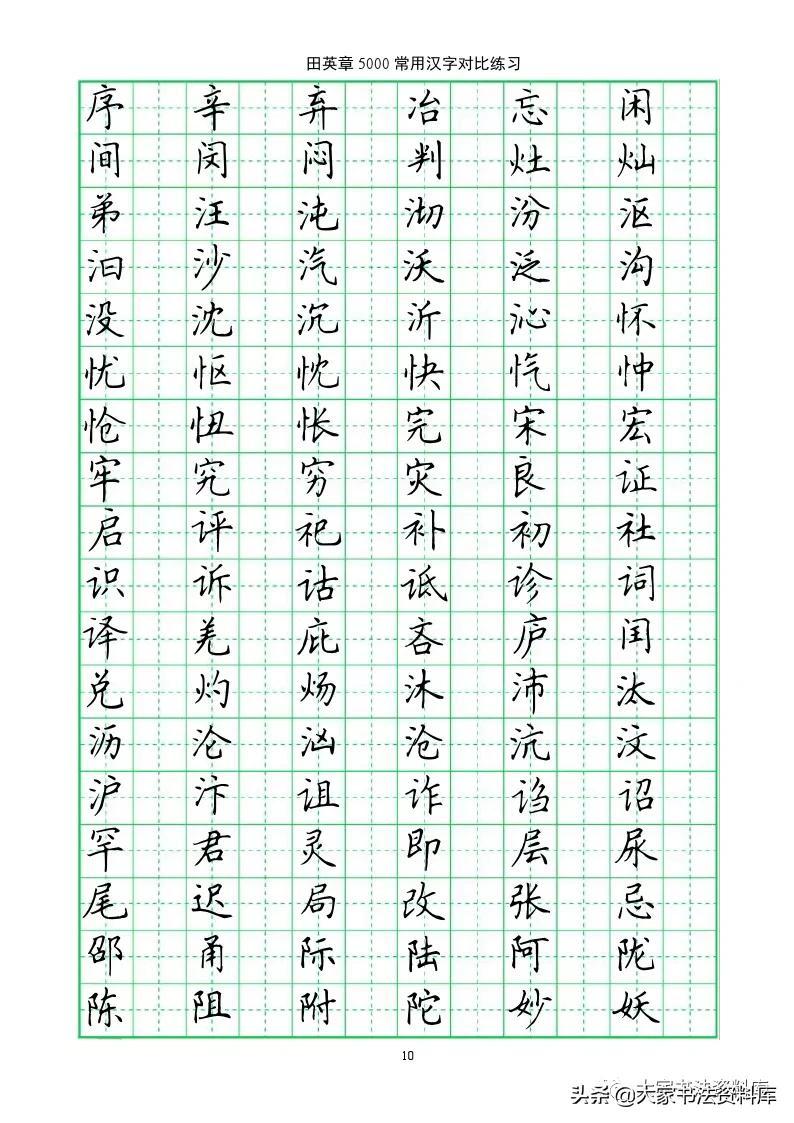 田英章5000常用汉字对比练习
序 辛 弃 冶 忘 闲
间 闵 闷 判 灶 灿
弟 汪 沌 沏 汾 沤
汩 沙 汽 沃 泛 沟
没 沈 沉 沂 沁 怀
忧 怄 忱 快 忾 忡
怆 忸 怅 完 宋 宏
牢 究 穷 灾 良 证
启 评 祀 补 初 社
识 诉 诂 诋 诊 词
译 羌 庇 吝 庐 闰
兑 灼 炀 沐 沛 汰
沥 沦 汹 沧 沆 汶
沪 汴 诅 诈 诌 诏
罕 君 灵 即 层 尿
尾 迟 局 改 张 忌
邵 甬 际 陆 阿 陇
陈 阻 附 陀 妙 妖
10
大家书法资料库
头条@大家书法资料库